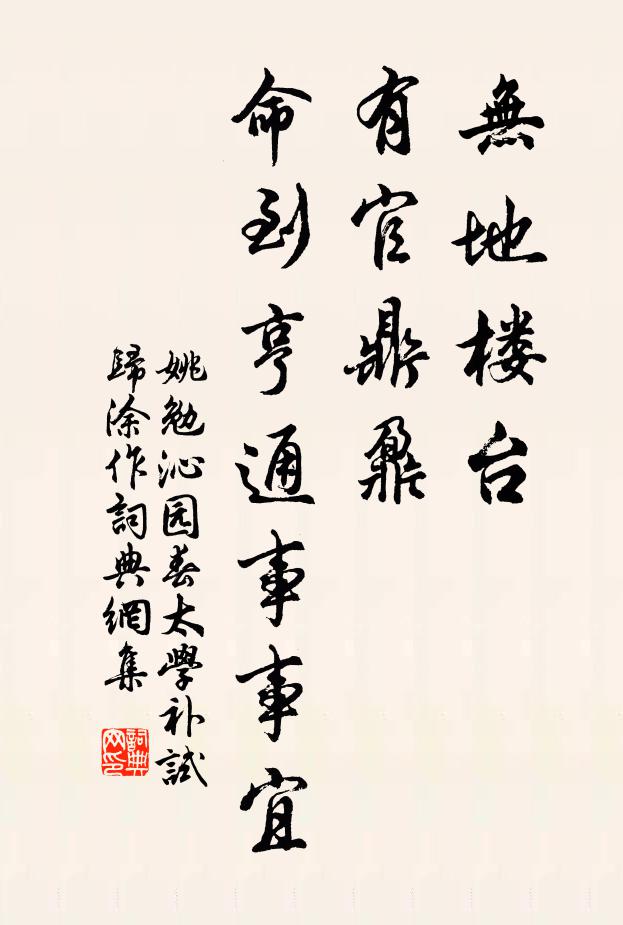 無地楼台
有官鼎鼐
命到亨通事事宜
姚勉沁园春太學补試
歸涂作詞典網集
詞典网印